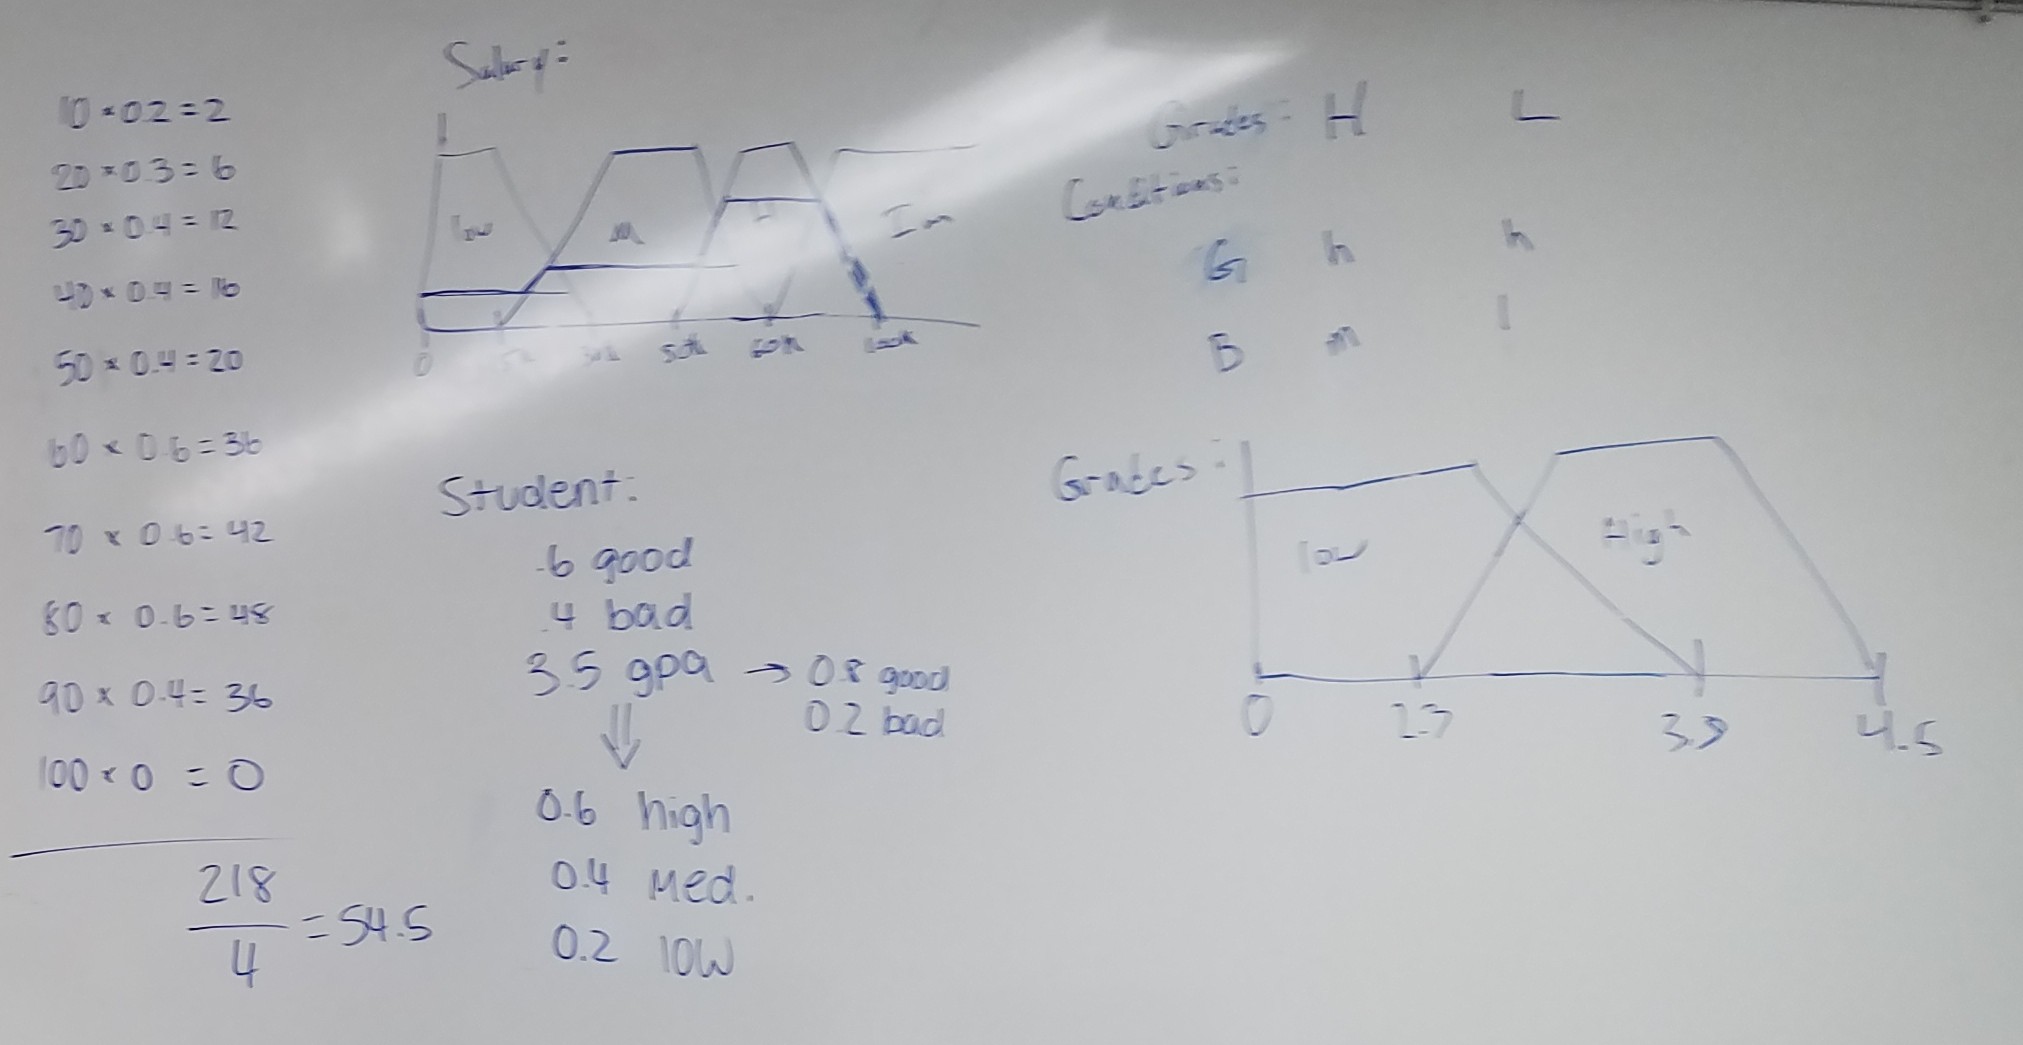 10 * 0.2 = 2
20 * 0.3 = 6
30 * 0.4 = 12
40 * 0.4 = 16
50 * 0.4 = 20
60 x 0.6 = 36
70 x 0.6 = 42
80 x 0.6 = 48
90 x 0.4 = 36
100 x 0 = 0
218
4
= 54.5
Salary:
low
M
Im
0
50k
60k
100k
Student:
.6 good
.4 bad
3.5 gpa → 0.8 good
0.2 bad
⇓
0.6 high
0.4 Med.
0.2 low
Grades: H L
Conditions:
G h h
B m l
Grades:
low
High
0
2.7
3.9
4.5